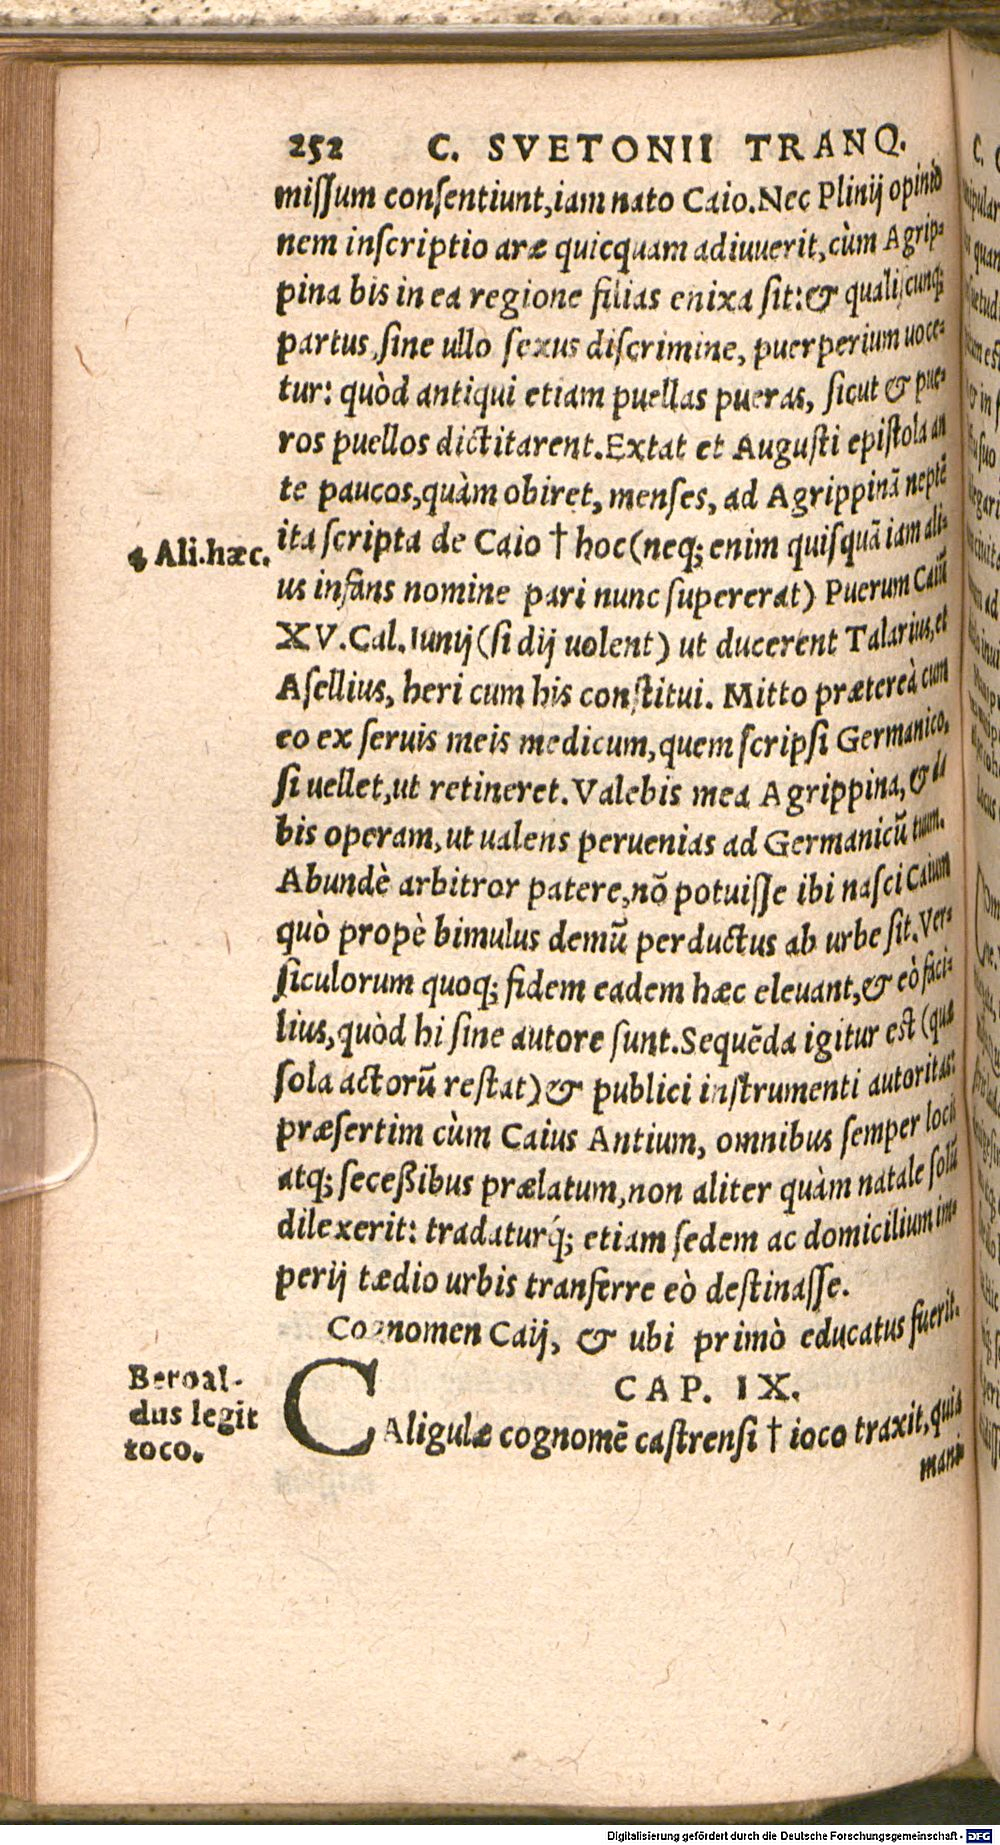 252 C. SVETONII TRANQ.
miſſum conſentiunt, iam nato Caio. Nec Plinij opinio
nem inſcriptio aræ quicquam adiuuerit, cùm Agrip-
pina bis in ea regione filias enixa ſit: & qualiſcunq;
partus, ſine ullo ſexus diſcrimine, puerperium uoce-
tur: quòd antiqui etiam puellas pueras, ſicut & pue-
ros puellos dictitarent. Extat et Auguſti epiſtola an
te paucos, quàm obiret, menſes, ad Agrippinā neptē
ita ſcripta de Caio † hoc (neq; enim quiſquā iam ali-
† Ali. hæc.
us infans nomine pari nunc ſupererat) Puerum Caiū
XV. Cal. Iunij (ſi dij uolent) ut ducerent Talarius, et
Aſellius, heri cum his conſtitui. Mitto prætereà cum
eo ex ſeruis meis medicum, quem ſcripſi Germanico,
ſi uellet, ut retineret. Valebis mea Agrippina, & da
bis operam, ut ualens peruenias ad Germanicū tuum.
Abundè arbitror patere, nō potuiſſe ibi naſci Caium
quò propè bimulus demū perductus ab urbe ſit. Ver-
ſiculorum quoq; fidem eadem hæc eleuant, & eò faci-
lius, quòd hi ſine autore ſunt. Sequēda igitur eſt (quæ
ſola actorū reſtat) & publici inſtrumenti autoritas:
præſertim cùm Caius Antium, omnibus ſemper locis
atq; ſeceßibus prælatum, non aliter quàm natale ſolū
dilexerit: tradaturq́; etiam ſedem ac domicilium im-
perij tædio urbis transferre eò deſtinaſſe.
Cognomen Caij, & ubi primò educatus fuerit.
CAP. IX.
CAligulæ cognomē caſtrenſi † ioco traxit, quia
Beroal-
dus legit
toco.
mani
Digitalisierung gefördert durch die Deutsche Forschungsgemeinschaft - DFG